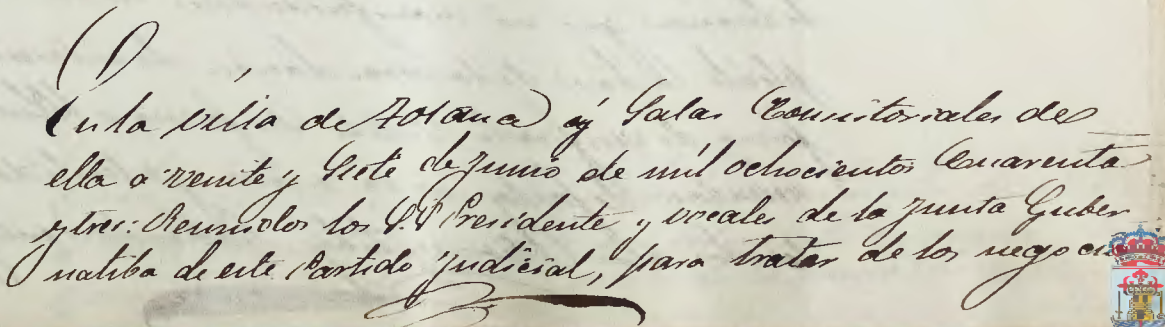 En la villa de Totana y Salas Consistoriales de
ella a veinte y siete de Junio de mil ochocientos Cuarenta
y tres: Reunidos los S.S Presidente y vocales de la Junta Guber
natiba de este Partido Judicial, para tratar de los negocios